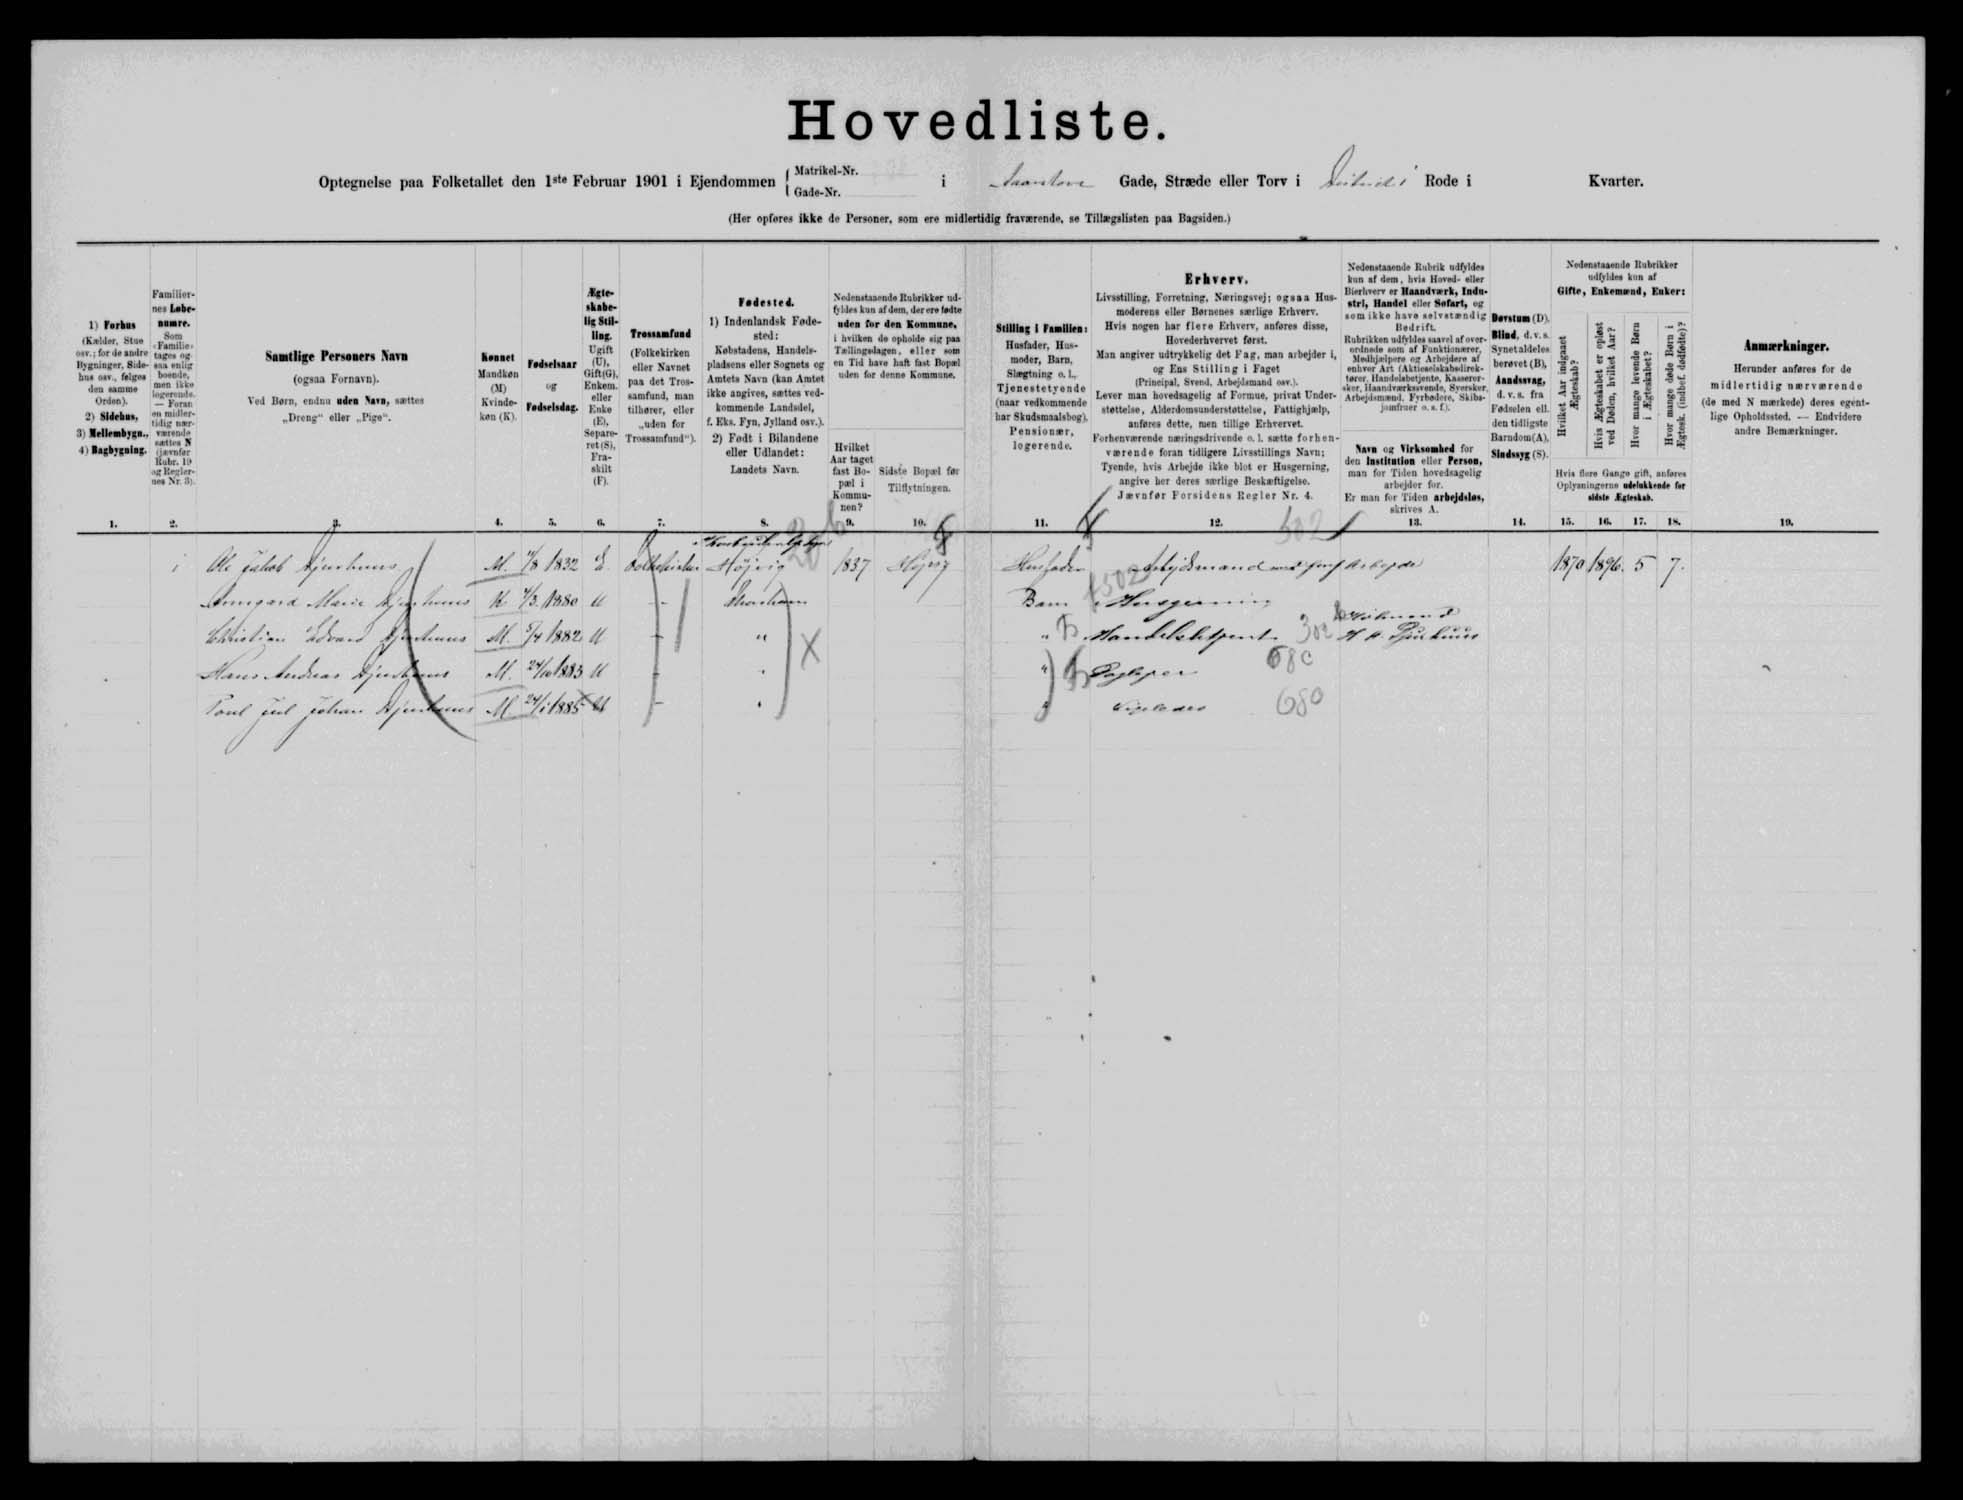 Hovedliste.
Optegnelse paa Folketallet den 1ste Februar 1901 i Ejendommen { Matrikel-Nr. Gade-Nr. i Gade, Stræde eller Torv i Rode i Kvarter.
(Her opføres ikke de Personer, som ere midlertidig fraværende, se Tillægslisten paa Bagsiden.)
1) Forhus (Kælder, Stue osv.; for de andre Bygninger, Sidehus osv., følges den samme Orden). 2) Sidehus, 3) Mellembygn., 4) Bagbygning.
Familiernes Løbenumre. Som „Familie“ tages ogsaa enlig boende, men ikke logerende. — Foran en midlertidig nærværende sættes N (jævnfør Rubr. 19 og Reglernes Nr. 3).
Samtlige Personers Navn (ogsaa Fornavn). Ved Børn, endnu uden Navn, sættes „Dreng“ eller „Pige“.
Kønnet Mandkøn (M) Kvindekøn (K).
Fødselsaar og Fødselsdag.
Ægteskabelig Stilling. Ugift (U), Gift (G), Enkem. eller Enke (E), Separeret (S), Fraskilt (F).
Trossamfund (Folkekirken eller Navnet paa det Trossamfund, man tilhører, eller „uden for Trossamfund“).
Fødested. 1) Indenlandsk Fødested: Købstadens, Handelspladsens eller Sognets og Amtets Navn (kan Amtet ikke angives, sættes vedkommende Landsdel, f. Eks. Fyn, Jylland osv.). 2) Født i Bilandene eller Udlandet: Landets Navn.
Nedenstaaende Rubrikker udfyldes kun af dem, der ere fødte uden for den Kommune, i hvilken de opholde sig paa Tællingsdagen, eller som en Tid have haft fast Bopæl uden for denne Kommune.
Hvilket Aar taget fast Bopæl i Kommunen?
Sidste Bopæl før Tilflytningen.
Stilling i Familien: Husfader, Husmoder, Barn, Slægtning o. l., Tjenestetyende (naar vedkommende har Skudsmaalsbog), Pensionær, logerende.
Erhverv.
Livsstilling, Forretning, Næringsvej; ogsaa Husmoderens eller Børnenes særlige Erhverv.
Hvis nogen har flere Erhverv, anføres disse, Hovederhvervet først.
Man angiver udtrykkelig det Fag, man arbejder i, og Ens Stilling i Faget (Principal, Svend, Arbejdsmand osv.).
Lever man hovedsagelig af Formue, privat Understøttelse, Alderdomsunderstøttelse, Fattighjælp, anføres dette, men tillige Erhvervet.
Forhenværende næringsdrivende o. l. sætte forhenværende foran tidligere Livsstillings Navn;
Tyende, hvis Arbejde ikke blot er Husgerning, angive her deres særlige Beskæftigelse.
Jævnfør Forsidens Regler Nr. 4.
Nedenstaaende Rubrik udfyldes kun af dem, hvis Hoved- eller Bierhverv er Haandværk, Industri, Handel eller Søfart, og som ikke have selvstændig Bedrift.
Rubrikken udfyldes saavel af overordnede som af Funktionærer, Medhjælpere og Arbejdere af enhver Art (Aktieselskabsdirektører, Handelsbetjente, Kasserersker, Haandværkssvende, Syersker, Arbejdsmænd, Fyrbødere, Skibsjomfruer o. s. f.).
Navn og Virksomhed for den Institution eller Person, man for Tiden hovedsagelig arbejder for.
Er man for Tiden arbejdsløs, skrives A.
Døvstum (D). Blind, d. v. s. Synet aldeles berøvet (B), Aandssvag, d. v. s. fra Fødselen ell. den tidligste Barndom (A), Sindssyg (S).
Nedenstaaende Rubrikker udfyldes kun af Gifte, Enkemænd, Enker:
Hvilket Aar indgaaet Ægteskab?
Hvis Ægteskabet er opløst ved Døden, hvilket Aar?
Hvor mange levende Børn i Ægteskabet?
Hvor mange døde Børn i Ægtesk. (indbef. dødfødte)?
Hvis flere Gange gift, anføres Oplysningerne udelukkende for sidste Ægteskab.
Anmærkninger. Herunder anføres for de midlertidig nærværende (de med N mærkede) deres egentlige Opholdssted. — Endvidere andre Bemærkninger.
1. 2. 3. 4. 5. 6. 7. 8. 9. 10. 11. 12. 13. 14. 15. 16. 17. 18. 19.
502
1 Ole Jakob Djurhuus M. 1832 E. Folkekirken Højvig 1837 Højvig Husfader Arbejdsmand 1870 1896. 5 7.
Marie Djurhuus K 1880 U — Thorshavn Barn Husgerning 502
Christian Edvard Djurhuus M. 5/4 1882 U — " " Handelsbetjent 302 Købmand H. A. Djurhuus
Hans Andreas Djurhuus M. 1883 U — " " 680
Poul Johan Djurhuus M 24/1 1885 U — " " Ligeledes 680